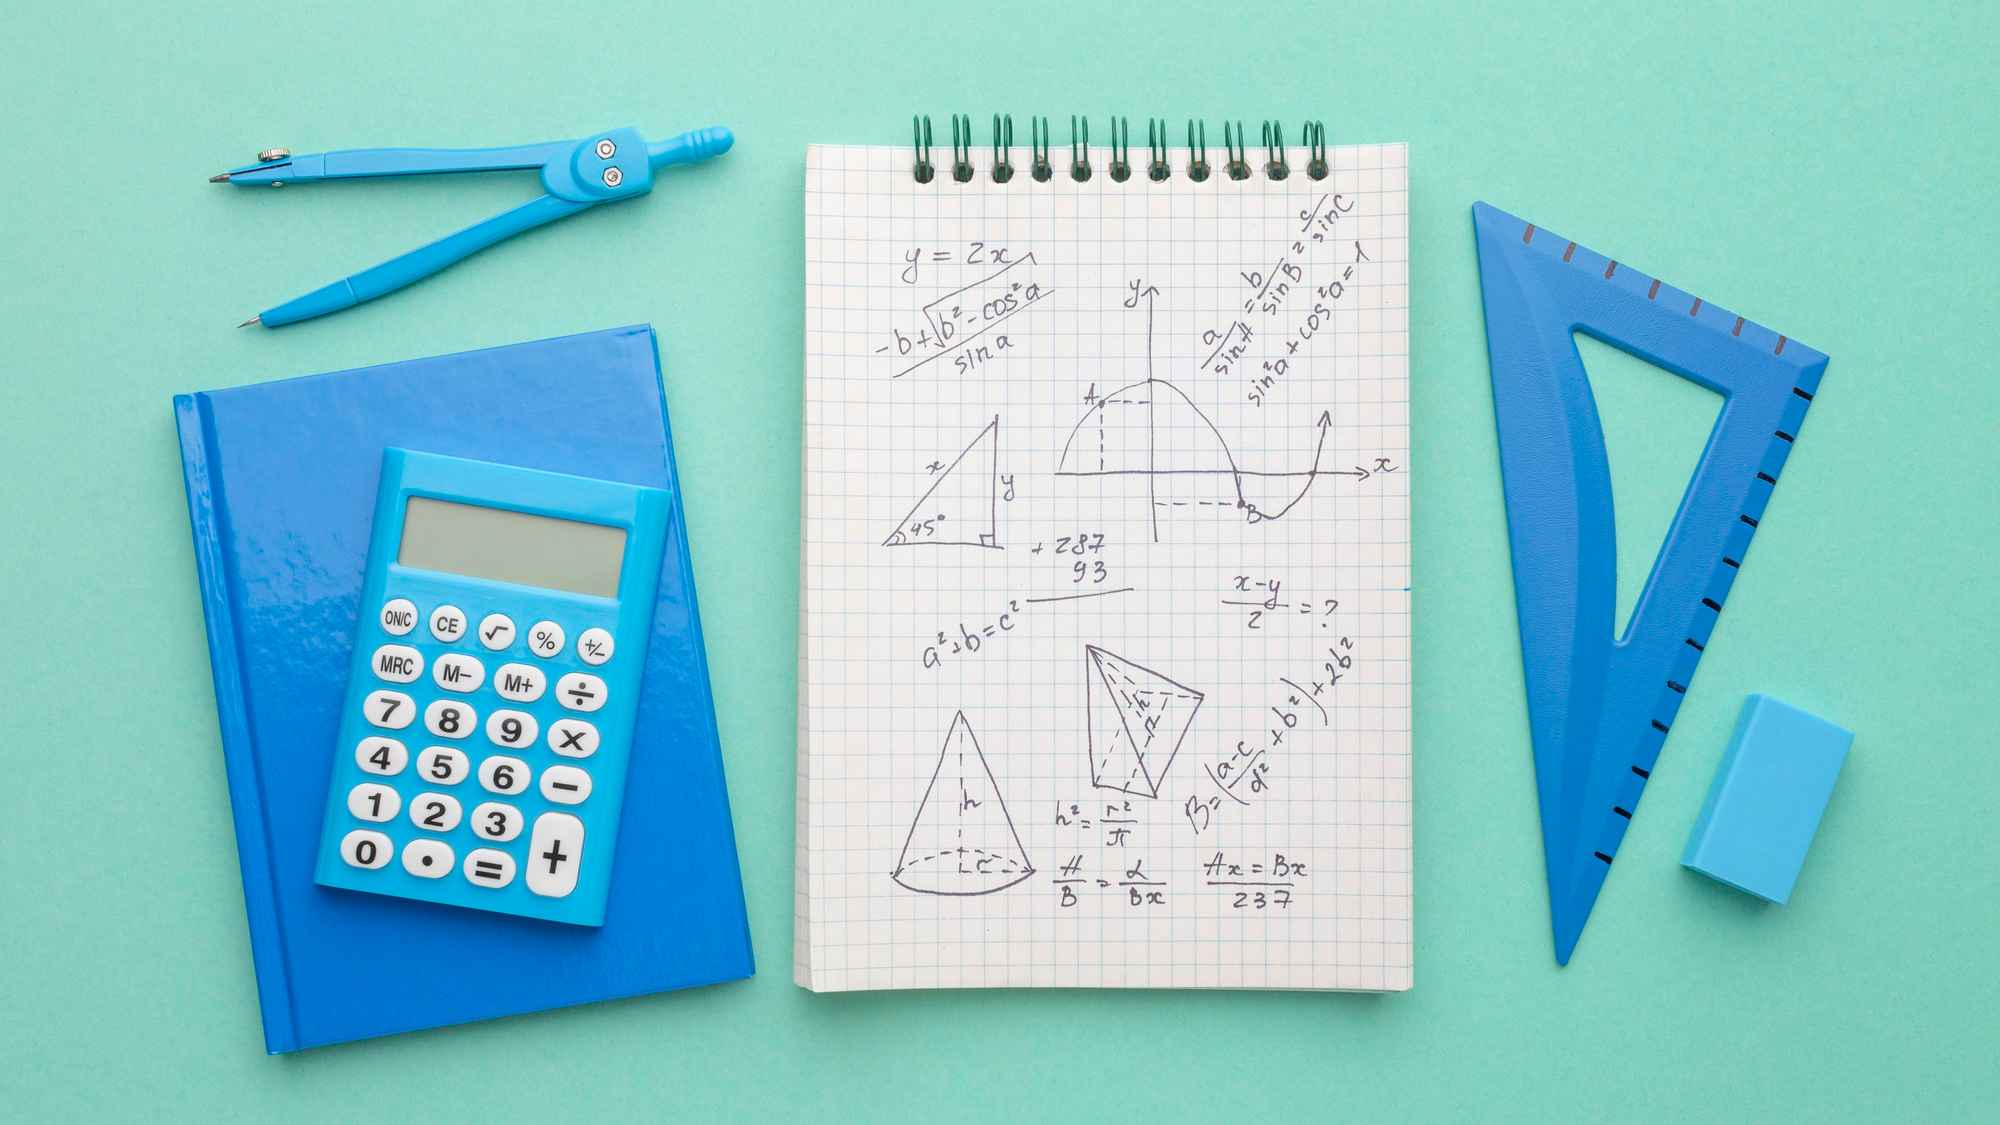 ON/C CE √ % +/−
MRC M− M+ ÷
7 8 9 ×
4 5 6 −
1 2 3 +
0 . =
y = 2x
-b+√(b²-cos²a)
sin a
a/sinA = b/sinB = c/sinC
sin²a + cos²a = 1
y
A
x
B
x
y
45°
+ 287
93
a²+b=c²
x-y
2
= ?
h
B=((a-c)/d² + b²) + 2b²
h
r
h² = r²/π
A/B = α/Bx
Ax = Bx
237